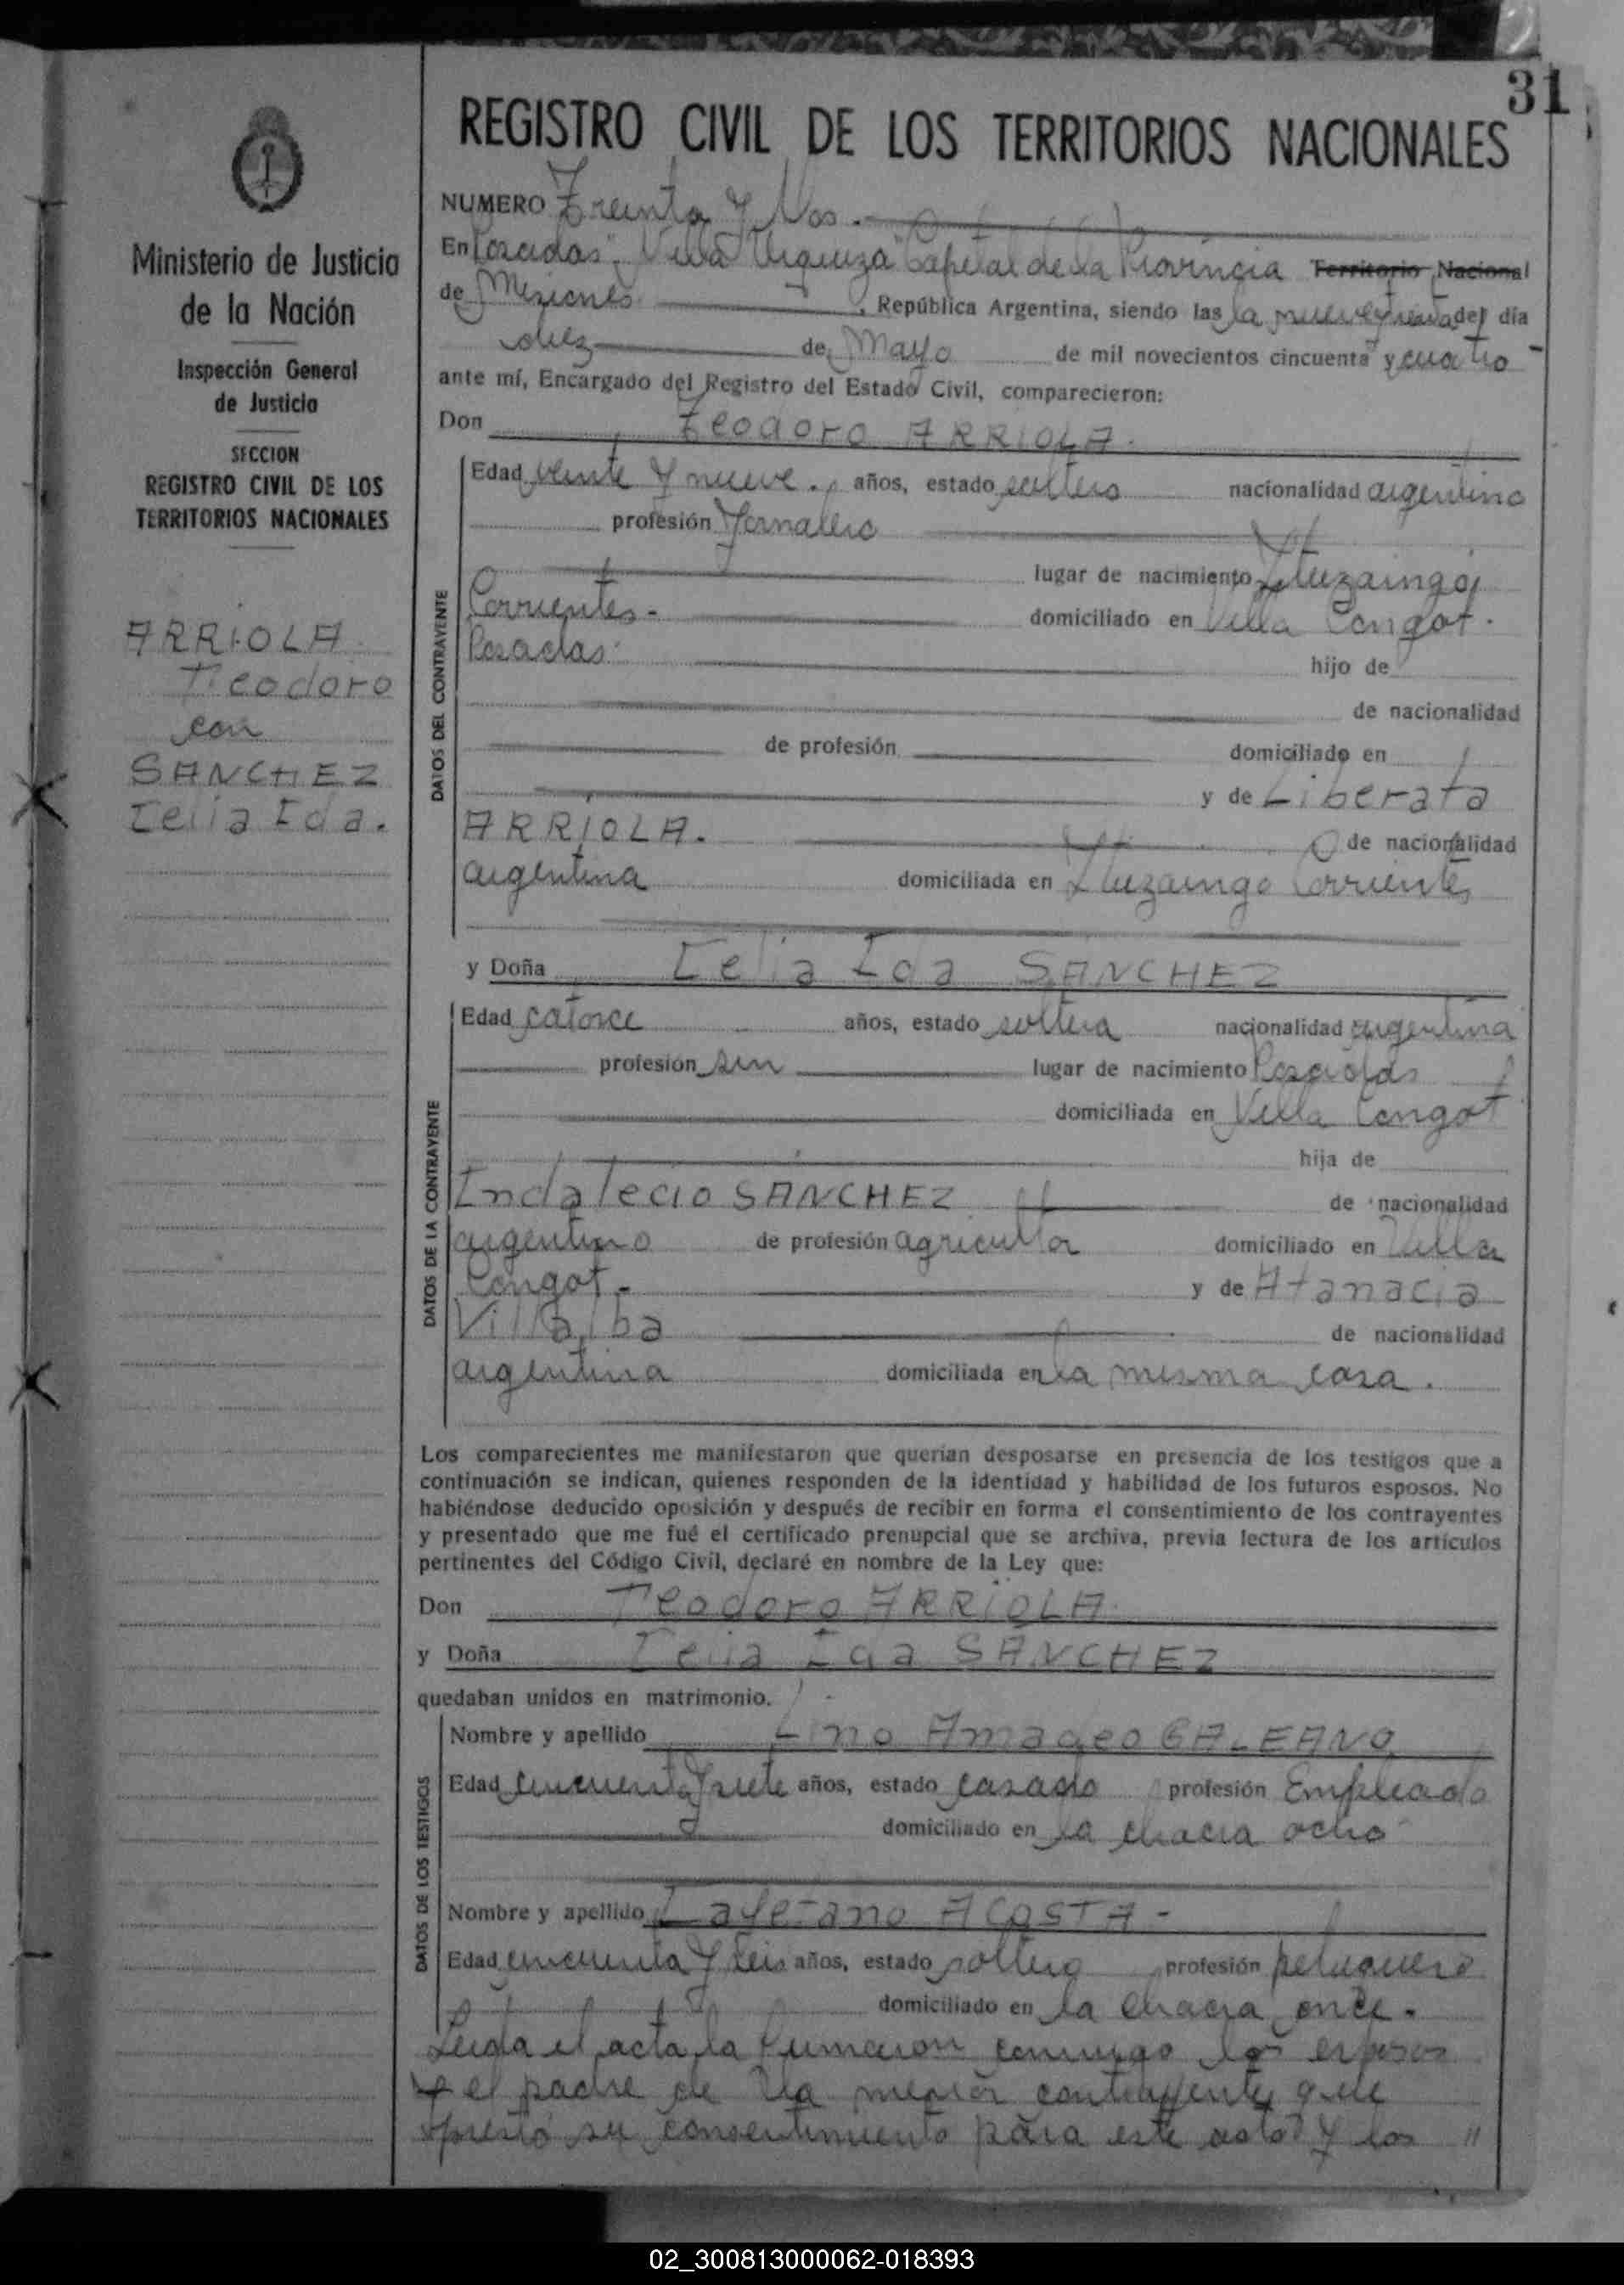 31
REGISTRO CIVIL DE LOS TERRITORIOS NACIONALES
Ministerio de Justicia
de la Nación
Inspección General
de Justicia
SECCION
REGISTRO CIVIL DE LOS
TERRITORIOS NACIONALES
ARRIOLA
Teodoro
con
SANCHEZ
Celia Eda.
NUMERO Treinta y dos.
En Posadas "Villa Urquiza" Capital de la Provincia Territorio Nacional
de Misiones, República Argentina, siendo las la nueve y treinta del día
diez de Mayo de mil novecientos cincuenta y cuatro
ante mí, Encargado del Registro del Estado Civil, comparecieron:
Don Teodoro ARRIOLA.
DATOS DEL CONTRAYENTE
Edad veinte y nueve. años, estado soltero nacionalidad argentino
profesión Jornalero
lugar de nacimiento Ituzaingó,
Corrientes.- domiciliado en Villa Longat.
Posadas. hijo de
de nacionalidad
de profesión domiciliado en
y de Liberata
ARRIOLA. de nacionalidad
argentina domiciliada en Ituzaingo Corrientes
y Doña Celia Eda SANCHEZ
DATOS DE LA CONTRAYENTE
Edad catorce años, estado soltera nacionalidad argentina
profesión sin lugar de nacimiento Posadas
domiciliada en Villa Longat
hija de
Indalecio SANCHEZ de nacionalidad
argentino de profesión agricultor domiciliado en Villa
Longat.- y de Atanacia
Villalba de nacionalidad
argentina domiciliada en la misma casa.
Los comparecientes me manifestaron que querían desposarse en presencia de los testigos que a
continuación se indican, quienes responden de la identidad y habilidad de los futuros esposos. No
habiéndose deducido oposición y después de recibir en forma el consentimiento de los contrayentes
y presentado que me fué el certificado prenupcial que se archiva, previa lectura de los artículos
pertinentes del Código Civil, declaré en nombre de la Ley que:
Don Teodoro ARRIOLA.
y Doña Celia Eda SANCHEZ
quedaban unidos en matrimonio.
DATOS DE LOS TESTIGOS
Nombre y apellido Lino Amadeo GALEANO
Edad cincuenta y siete años, estado casado profesión Empleado
domiciliado en la chacra ocho
Nombre y apellido Cayetano ACOSTA-
Edad cincuenta y seis años, estado soltero profesión peluquero
domiciliado en la chacra once.
Leida el acta la firmaron conmigo los esposos
y el padre de la menor contrayente que
prestó su consentimiento para este acto y los "
02_300813000062-018393